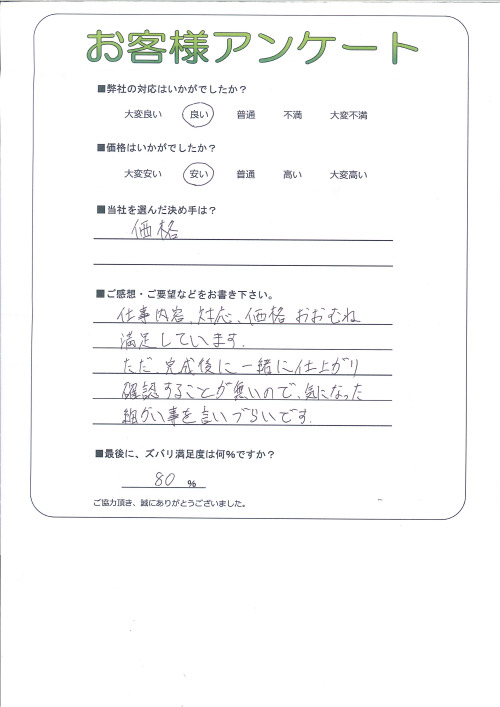 お客様アンケート
■弊社の対応はいかがでしたか？
大変良い 良い 普通 不満 大変不満
■価格はいかがでしたか？
大変安い 安い 普通 高い 大変高い
■当社を選んだ決め手は？
価格
■ご感想・ご要望などをお書き下さい。
仕事内容、対応、価格おおむね
満足しています.
ただ、完成後に一緒に仕上がり
確認することが無いので、気になった
細かい事を言いづらいです.
■最後に、ズバリ満足度は何％ですか？
80 %
ご協力頂き、誠にありがとうございました。